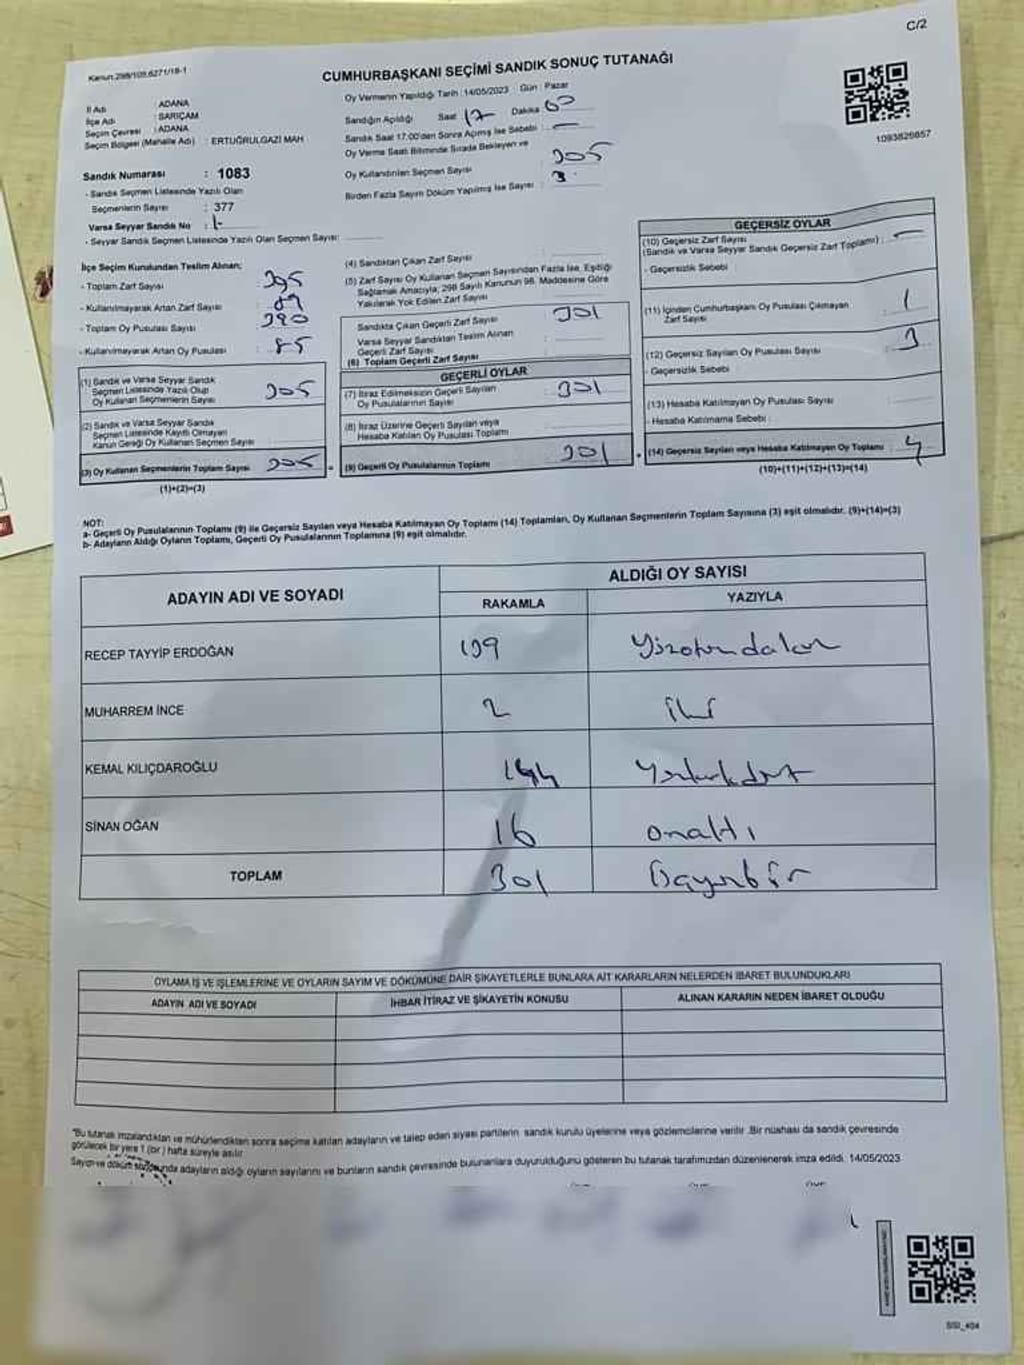 C/2
Kanun:298/105,6271/18-1
CUMHURBAŞKANI SEÇİMİ SANDIK SONUÇ TUTANAĞI
İl Adı : ADANA
İlçe Adı : SARIÇAM
Seçim Çevresi : ADANA
Seçim Bölgesi (Mahalle Adı) : ERTUĞRULGAZİ MAH
Oy Vermenin Yapıldığı Tarih : 14/05/2023 Gün : Pazar
Sandığın Açıldığı Saat 17 Dakika 00
Sandık Saat 17:00'den Sonra Açılmış İse Sebebi : —
Oy Verme Saati Bitiminde Sırada Bekleyen ve
Oy Kullandırılan Seçmen Sayısı : 305
Birden Fazla Sayım Döküm Yapılmış İse Sayısı : 3
1093826857
Sandık Numarası : 1083
- Sandık Seçmen Listesinde Yazılı Olan
Seçmenlerin Sayısı : 377
Varsa Seyyar Sandık No :
- Seyyar Sandık Seçmen Listesinde Yazılı Olan Seçmen Sayısı:
İlçe Seçim Kurulundan Teslim Alınan;
- Toplam Zarf Sayısı : 395
- Kullanılmayarak Artan Zarf Sayısı :
- Toplam Oy Pusulası Sayısı : 390
- Kullanılmayarak Artan Oy Pusulası : 85
(1) Sandık ve Varsa Seyyar Sandık
Seçmen Listesinde Yazılı Olup
Oy Kullanan Seçmenlerin Sayısı : 305
(2) Sandık ve Varsa Seyyar Sandık
Seçmen Listesinde Kayıtlı Olmayan
Kanun Gereği Oy Kullanan Seçmen Sayısı :
(3) Oy Kullanan Seçmenlerin Toplam Sayısı : 305
(1)+(2)=(3)
(4) Sandıktan Çıkan Zarf Sayısı :
(5) Zarf Sayısı Oy Kullanan Seçmen Sayısından Fazla İse, Eşitliği
Sağlamak Amacıyla; 298 Sayılı Kanunun 98. Maddesine Göre
Yakılarak Yok Edilen Zarf Sayısı :
Sandıkta Çıkan Geçerli Zarf Sayısı : 301
Varsa Seyyar Sandıktan Teslim Alınan
Geçerli Zarf Sayısı :
(6) Toplam Geçerli Zarf Sayısı
GEÇERLİ OYLAR
(7) İtiraz Edilmeksizin Geçerli Sayılan
Oy Pusulalarının Sayısı : 301
(8) İtiraz Üzerine Geçerli Sayılan veya
Hesaba Katılan Oy Pusulası Toplamı :
(9) Geçerli Oy Pusulalarının Toplamı : 301
GEÇERSİZ OYLAR
(10) Geçersiz Zarf Sayısı
(Sandık ve Varsa Seyyar Sandık Geçersiz Zarf Toplamı) : —
- Geçersizlik Sebebi :
(11) İçinden Cumhurbaşkanı Oy Pusulası Çıkmayan
Zarf Sayısı : 1
(12) Geçersiz Sayılan Oy Pusulası Sayısı : 3
- Geçersizlik Sebebi :
(13) Hesaba Katılmayan Oy Pusulası Sayısı :
- Hesaba Katılmama Sebebi :
(14) Geçersiz Sayılan veya Hesaba Katılmayan Oy Toplamı : 4
(10)+(11)+(12)+(13)=(14)
NOT:
a- Geçerli Oy Pusulalarının Toplamı (9) ile Geçersiz Sayılan veya Hesaba Katılmayan Oy Toplamı (14) Toplamları, Oy Kullanan Seçmenlerin Toplam Sayısına (3) eşit olmalıdır. (9)+(14)=(3)
b- Adayların Aldığı Oyların Toplamı, Geçerli Oy Pusulalarının Toplamına (9) eşit olmalıdır.
ADAYIN ADI VE SOYADI
ALDIĞI OY SAYISI
RAKAMLA YAZIYLA
RECEP TAYYİP ERDOĞAN 139
MUHARREM İNCE 2 iki
KEMAL KILIÇDAROĞLU 144
SİNAN OĞAN 16 onaltı
TOPLAM 301 Üçyüzbir
OYLAMA İŞ VE İŞLEMLERİNE VE OYLARIN SAYIM VE DÖKÜMÜNE DAİR ŞİKAYETLERLE BUNLARA AİT KARARLARIN NELERDEN İBARET BULUNDUKLARI
ADAYIN ADI VE SOYADI İHBAR İTİRAZ VE ŞİKAYETİN KONUSU ALINAN KARARIN NEDEN İBARET OLDUĞU
"Bu tutanak imzalandıktan ve mühürlendikten sonra seçime katılan adayların ve talep eden siyasi partilerin sandık kurulu üyelerine veya gözlemcilerine verilir. Bir nüshası da sandık çevresinde
görülecek bir yere 1 (bir) hafta süreyle asılır.
Sayım ve döküm sonunda adayların aldığı oyların sayılarını ve bunların sandık çevresinde bulunanlara duyurulduğunu gösteren bu tutanak tarafımızdan düzenlenerek imza edildi. 14/05/2023
SSI_404